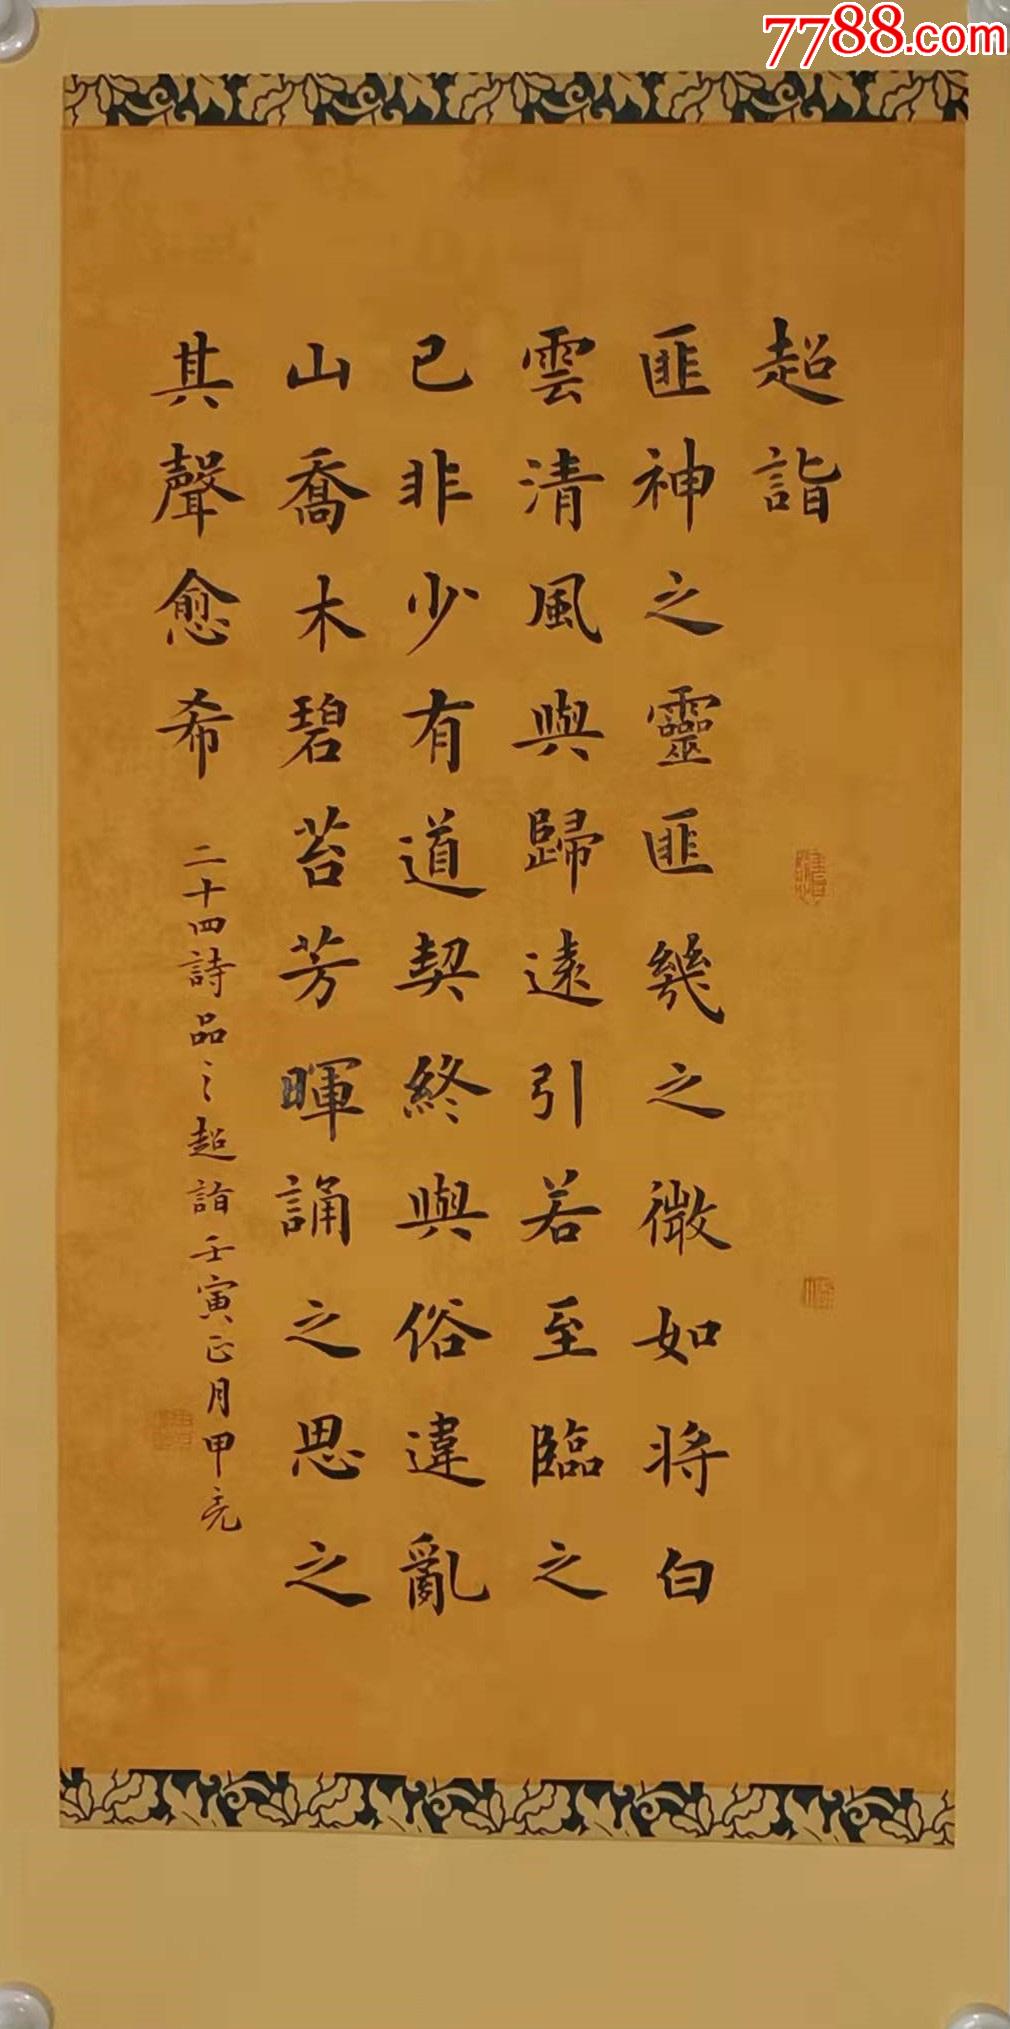 7788.com
超詣
匪神之靈匪幾之微如將白
雲清風與歸遠引若至臨之
已非少有道契終與俗違亂
山喬木碧苔芳暉誦之思之
其聲愈希
二十四詩品之超詣壬寅正月甲亮